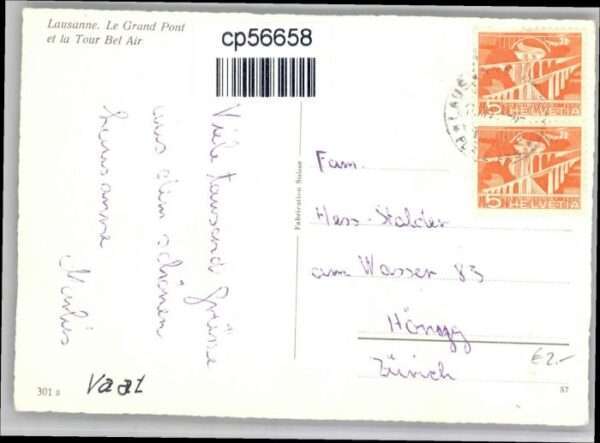 Lausanne. Le Grand Pont
et la Tour Bel Air
cp56658
Viele tausend Grüsse
aus dem schönen
Lausanne
Fabrication Suisse
5 HELVETIA
5 HELVETIA
Fam.
Hess-Stalder
am Wasser 83
Höngg
Zürich
€2.-
301 a
Vaat
37